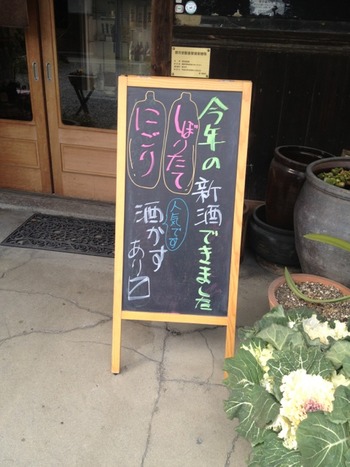 今年の新酒できました
しぼりたて
にごり
人気です
酒かす
あり